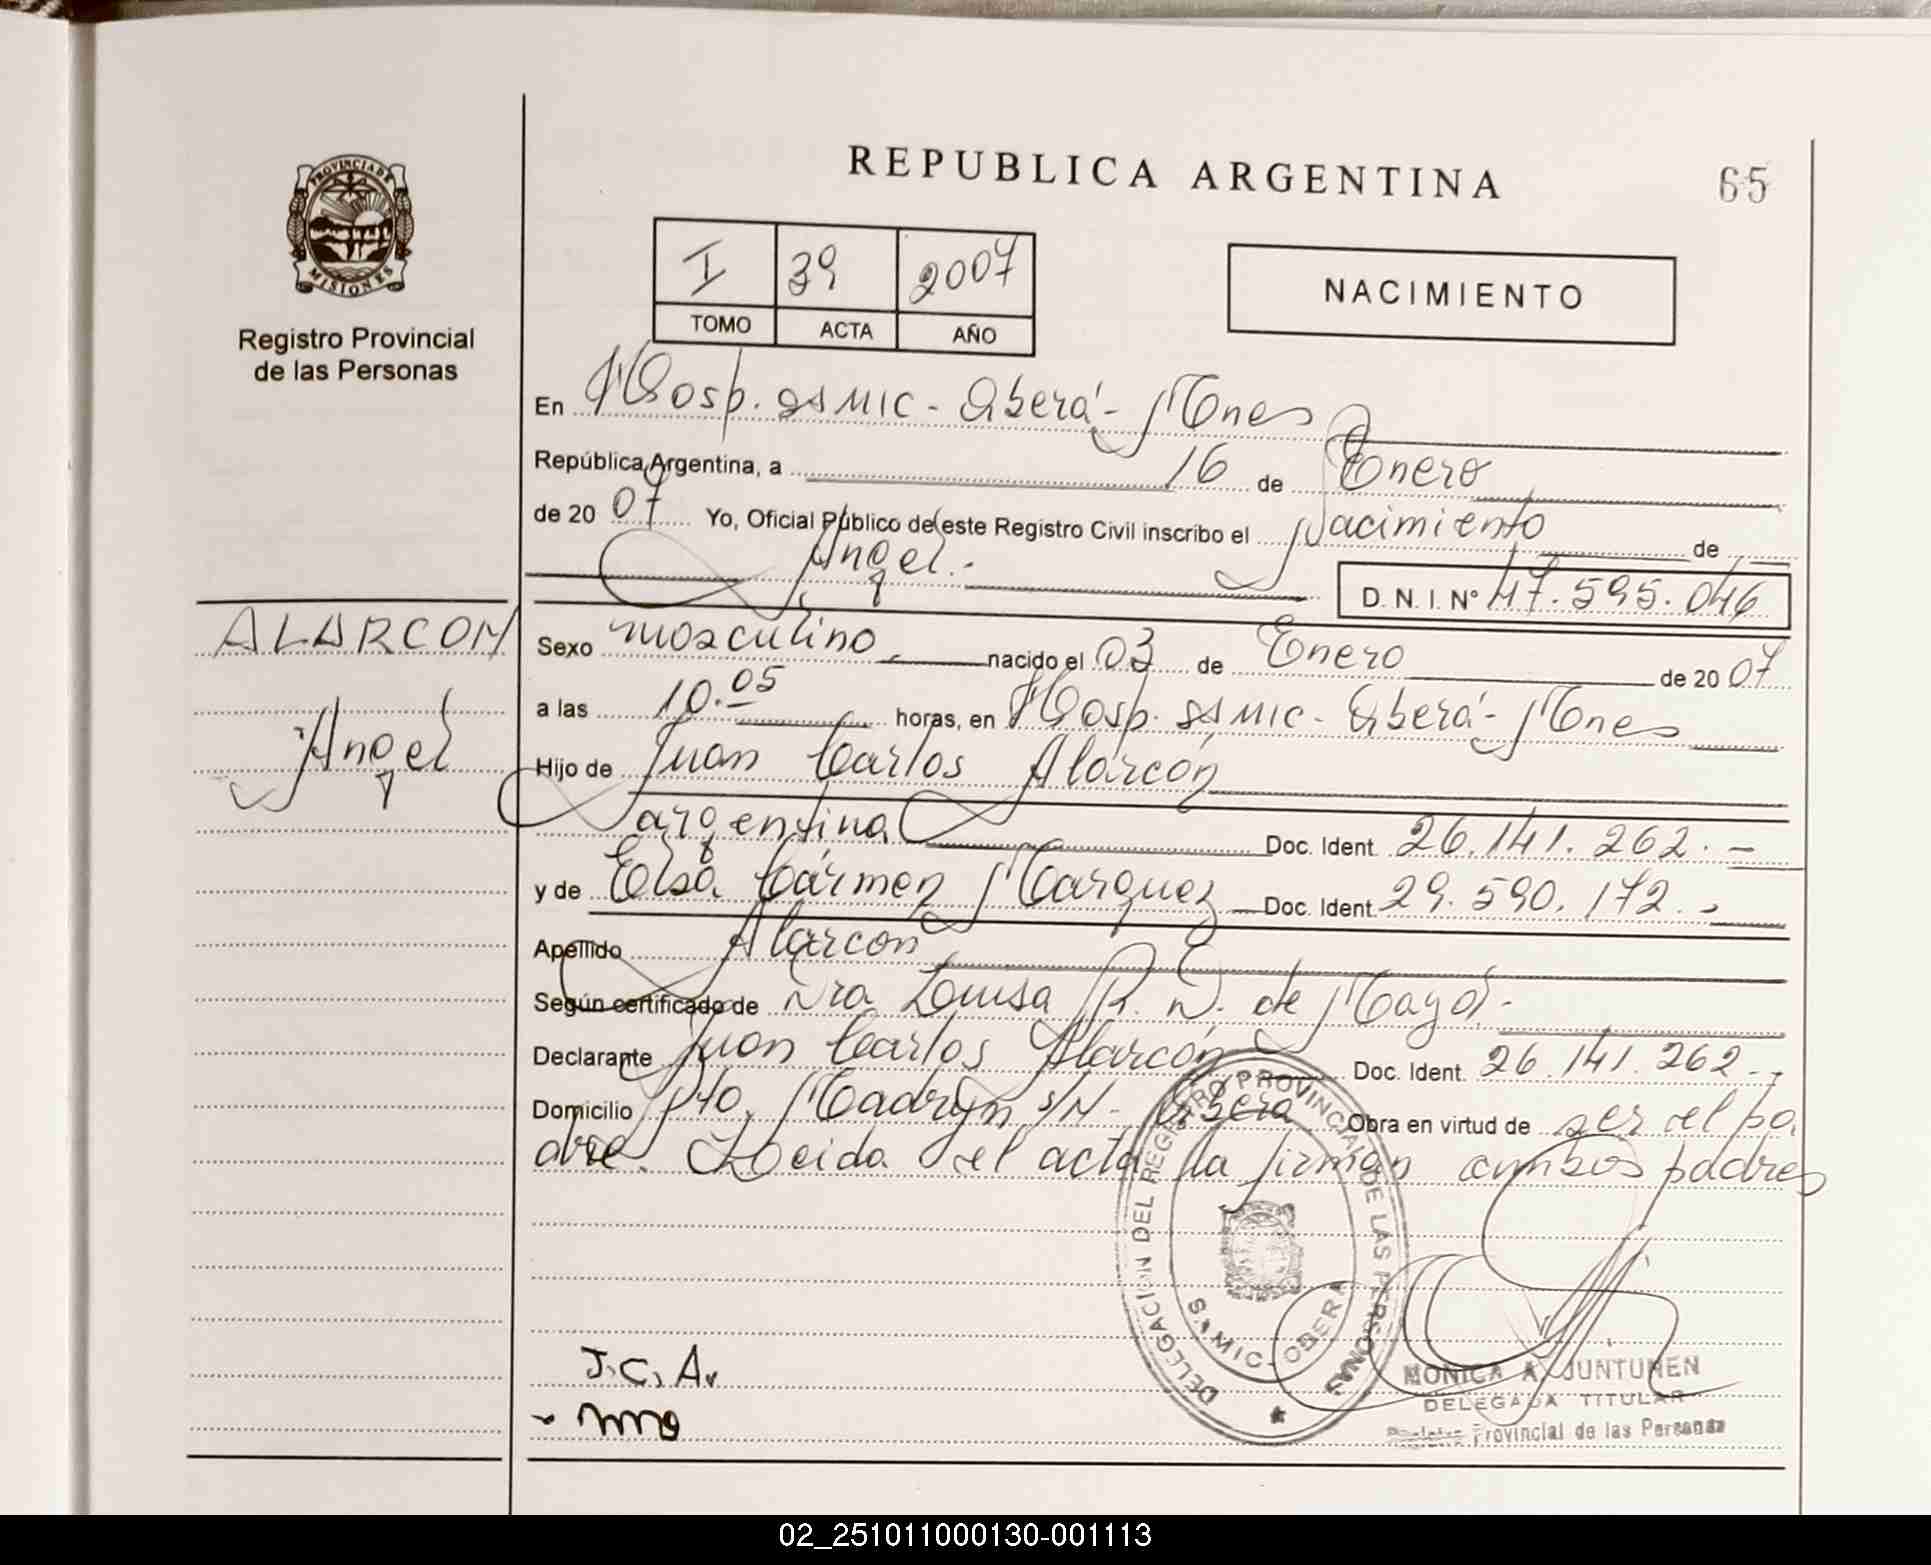 REPUBLICA ARGENTINA
65
PROVINCIA DE
MISIONES
Registro Provincial
de las Personas
I 39 2007
TOMO ACTA AÑO
NACIMIENTO
En Hosp. SAMIC - Oberá - Mnes
República Argentina, a 16 de Enero
de 20 07 Yo, Oficial Público de este Registro Civil inscribo el Nacimiento de
Angel.-
D.N.I. N° 47.595.046
ALARCON
Angel
Sexo masculino nacido el 03 de Enero de 20 07
a las 10.05 horas, en Hosp. SAMIC - Oberá - Mnes
Hijo de Juan Carlos Alarcón
argentina Doc. Ident. 26.141.262.-
y de Elsa Cármen Marquez Doc. Ident. 29.590.172.-
Apellido Alarcon
Según certificado de Dra Luisa R. D. de Mayol.-
Declarante Juan Carlos Alarcón Doc. Ident. 26.141.262.-
Domicilio Pto. Madryn S/N - Oberá Obra en virtud de ser el pa
dre. Leida el acta la firman ambos padres
DELEGACION DEL REGISTRO PROVINCIAL DE LAS PERSONAS
SAMIC - OBERA
J.C.A.
MONICA A. JUNTUNEN
DELEGADA TITULAR
Registro Provincial de las Personas
02_251011000130-001113